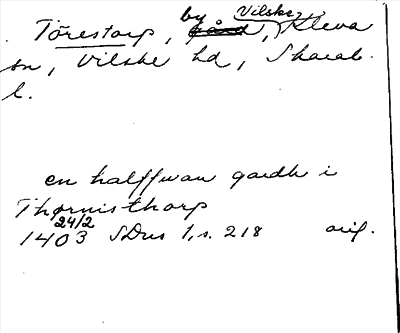 Törestorp, by Vilske-Kleva
sn, Vilske hd, Skarab.
l.
en halffwan gardh i
Thørnisthorp
24/2
1403 SDns 1, s. 218 orig.